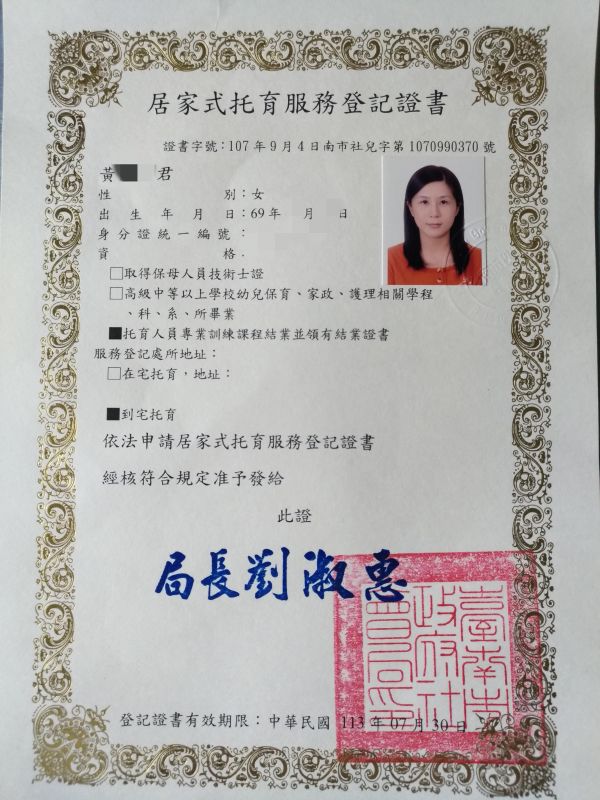 居家式托育服務登記證書
證書字號:107年9月4日南市社兒字第1070990370號
黃 君
性別:女
出生年月日:69年 月 日
身分證統一編號:
資格.
□取得保母人員技術士證
□高級中等以上學校幼兒保育、家政、護理相關學程
、科、系、所畢業
■托育人員專業訓練課程結業並領有結業證書
服務登記處所地址:
□在宅托育,地址:
■到宅托育
依法申請居家式托育服務登記證書
經核符合規定准予發給
此證
局長劉淑惠
臺南市政府社會局印
登記證書有效期限:中華民國 113年07月30日